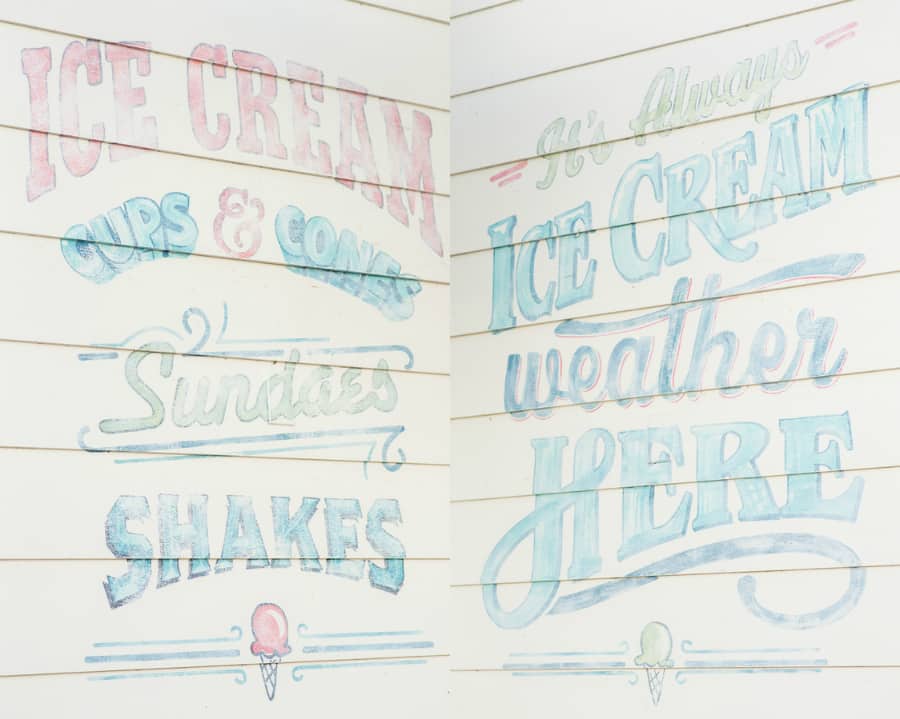 ICE CREAM
CUPS & CONES
Sundaes
SHAKES
It's Always
ICE CREAM
weather
HERE